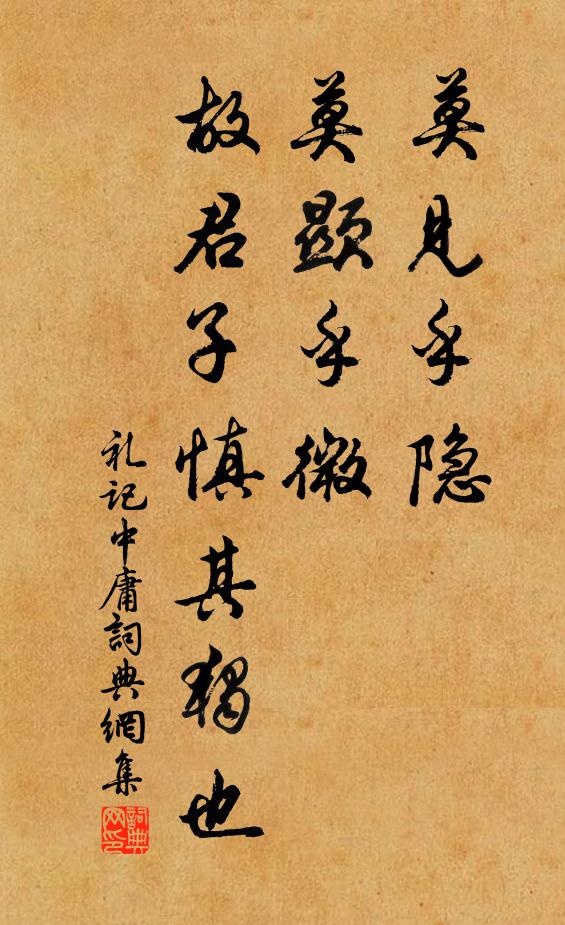 莫見乎隐
莫顯乎微
故君子慎其獨也
礼記中庸詞典網集
詞典网印